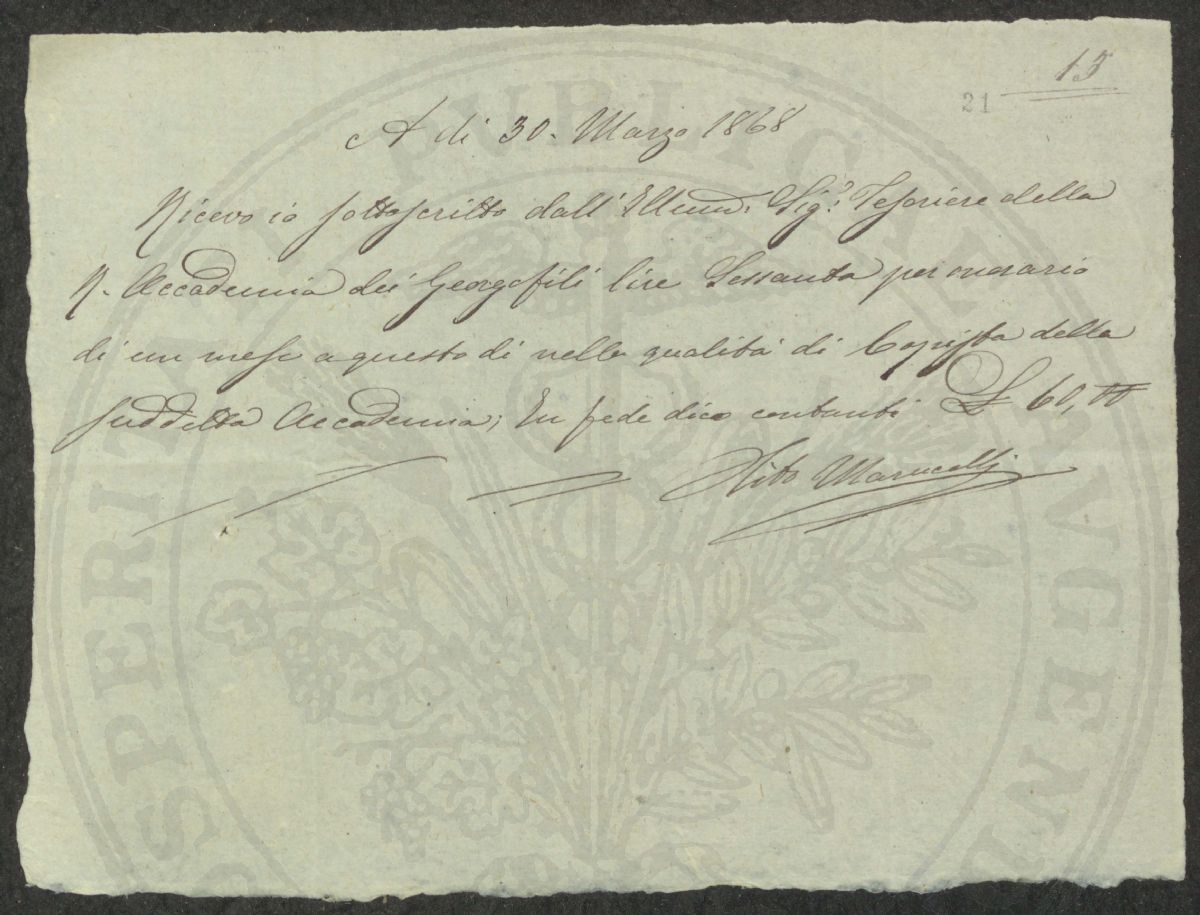 15
21
A di 30. Marzo 1868
Ricevo io sottoscritto dall'Illmo. Sigr. Tesoriere della
R. Accademia dei Georgofili lire Sessanta per onorario
di un mese a questo dì nella qualità di Copista della
suddetta Accademia; In fede dico contanti £ 60,00
Tito Marucelli
PROSPERITATI PUBLICAE AUGENDAE